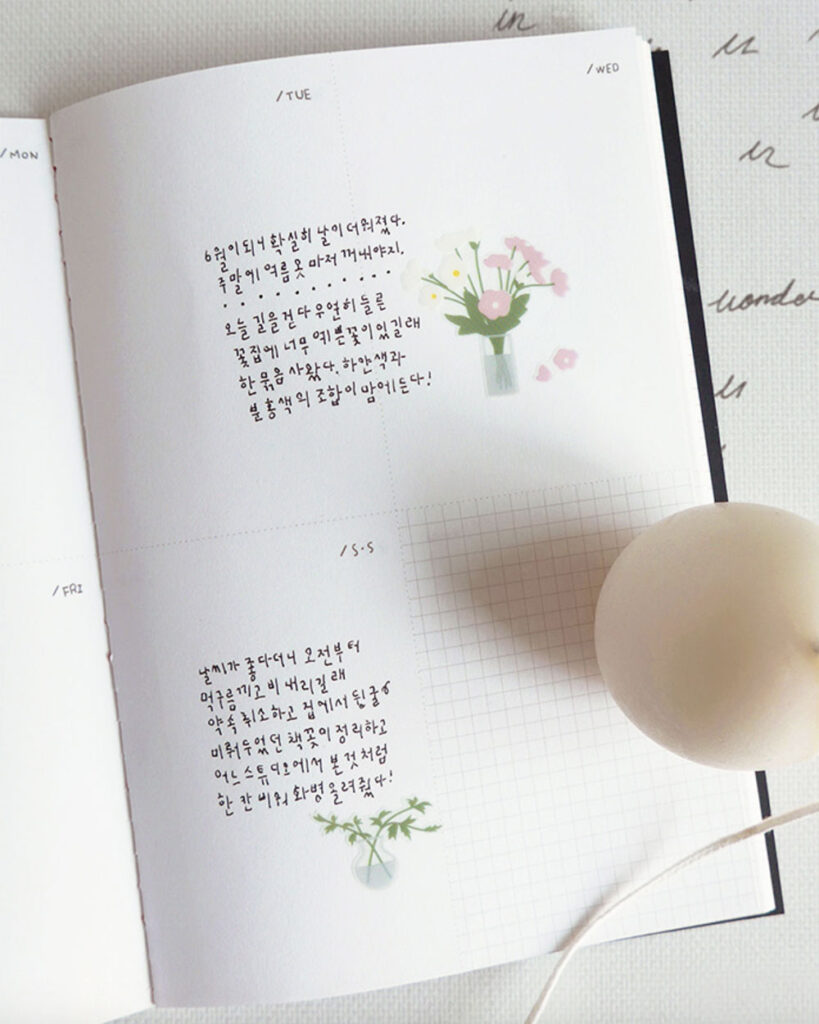 in
/TUE
/WED
/MON
6월이 되니 확실히 날이 더워졌다.
주말에 여름옷 마저 꺼내야지.
. . . . . . . . . . .
오늘 길을 걷다 우연히 들른
꽃집에 너무 예쁜 꽃이 있길래
한 묶음 사왔다. 하얀색과
분홍색의 조합이 맘에 든다!
/S·S
/FRI
날씨가 좋다더니 오전부터
먹구름끼고 비 내리길래
약속 취소하고 집에서 뒹굴
미뤄두었던 책꽂이 정리하고
어느 스튜디오에서 본것처럼
한 칸 비워 화병 올려줬다!